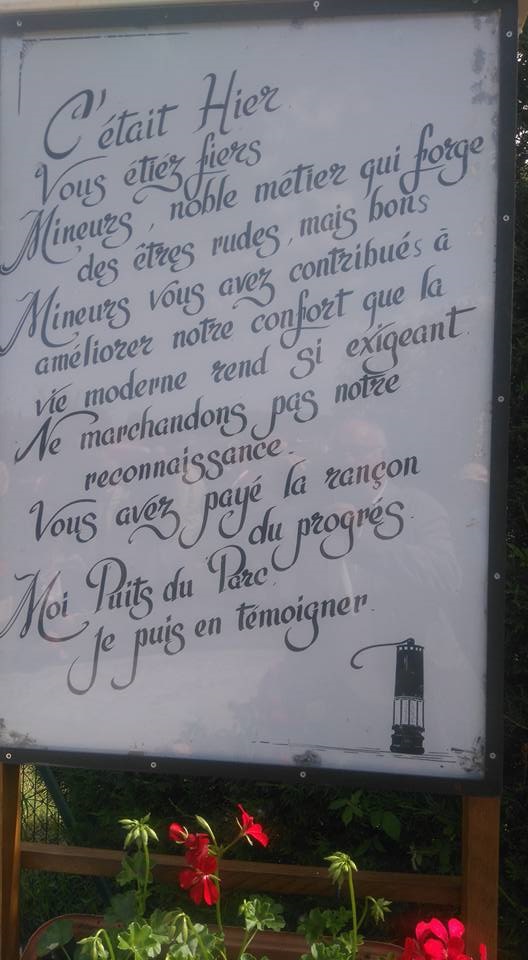 C'était Hier
Vous étiez fiers
Mineurs, noble métier qui forge
des êtres rudes, mais bons
Mineurs vous avez contribués à
améliorer notre confort que la
vie moderne rend si exigeant.
Ne marchandons pas notre
reconnaissance.
Vous avez payé la rançon
du progrés.
Moi Puits du Parc.
Je puis en témoigner.